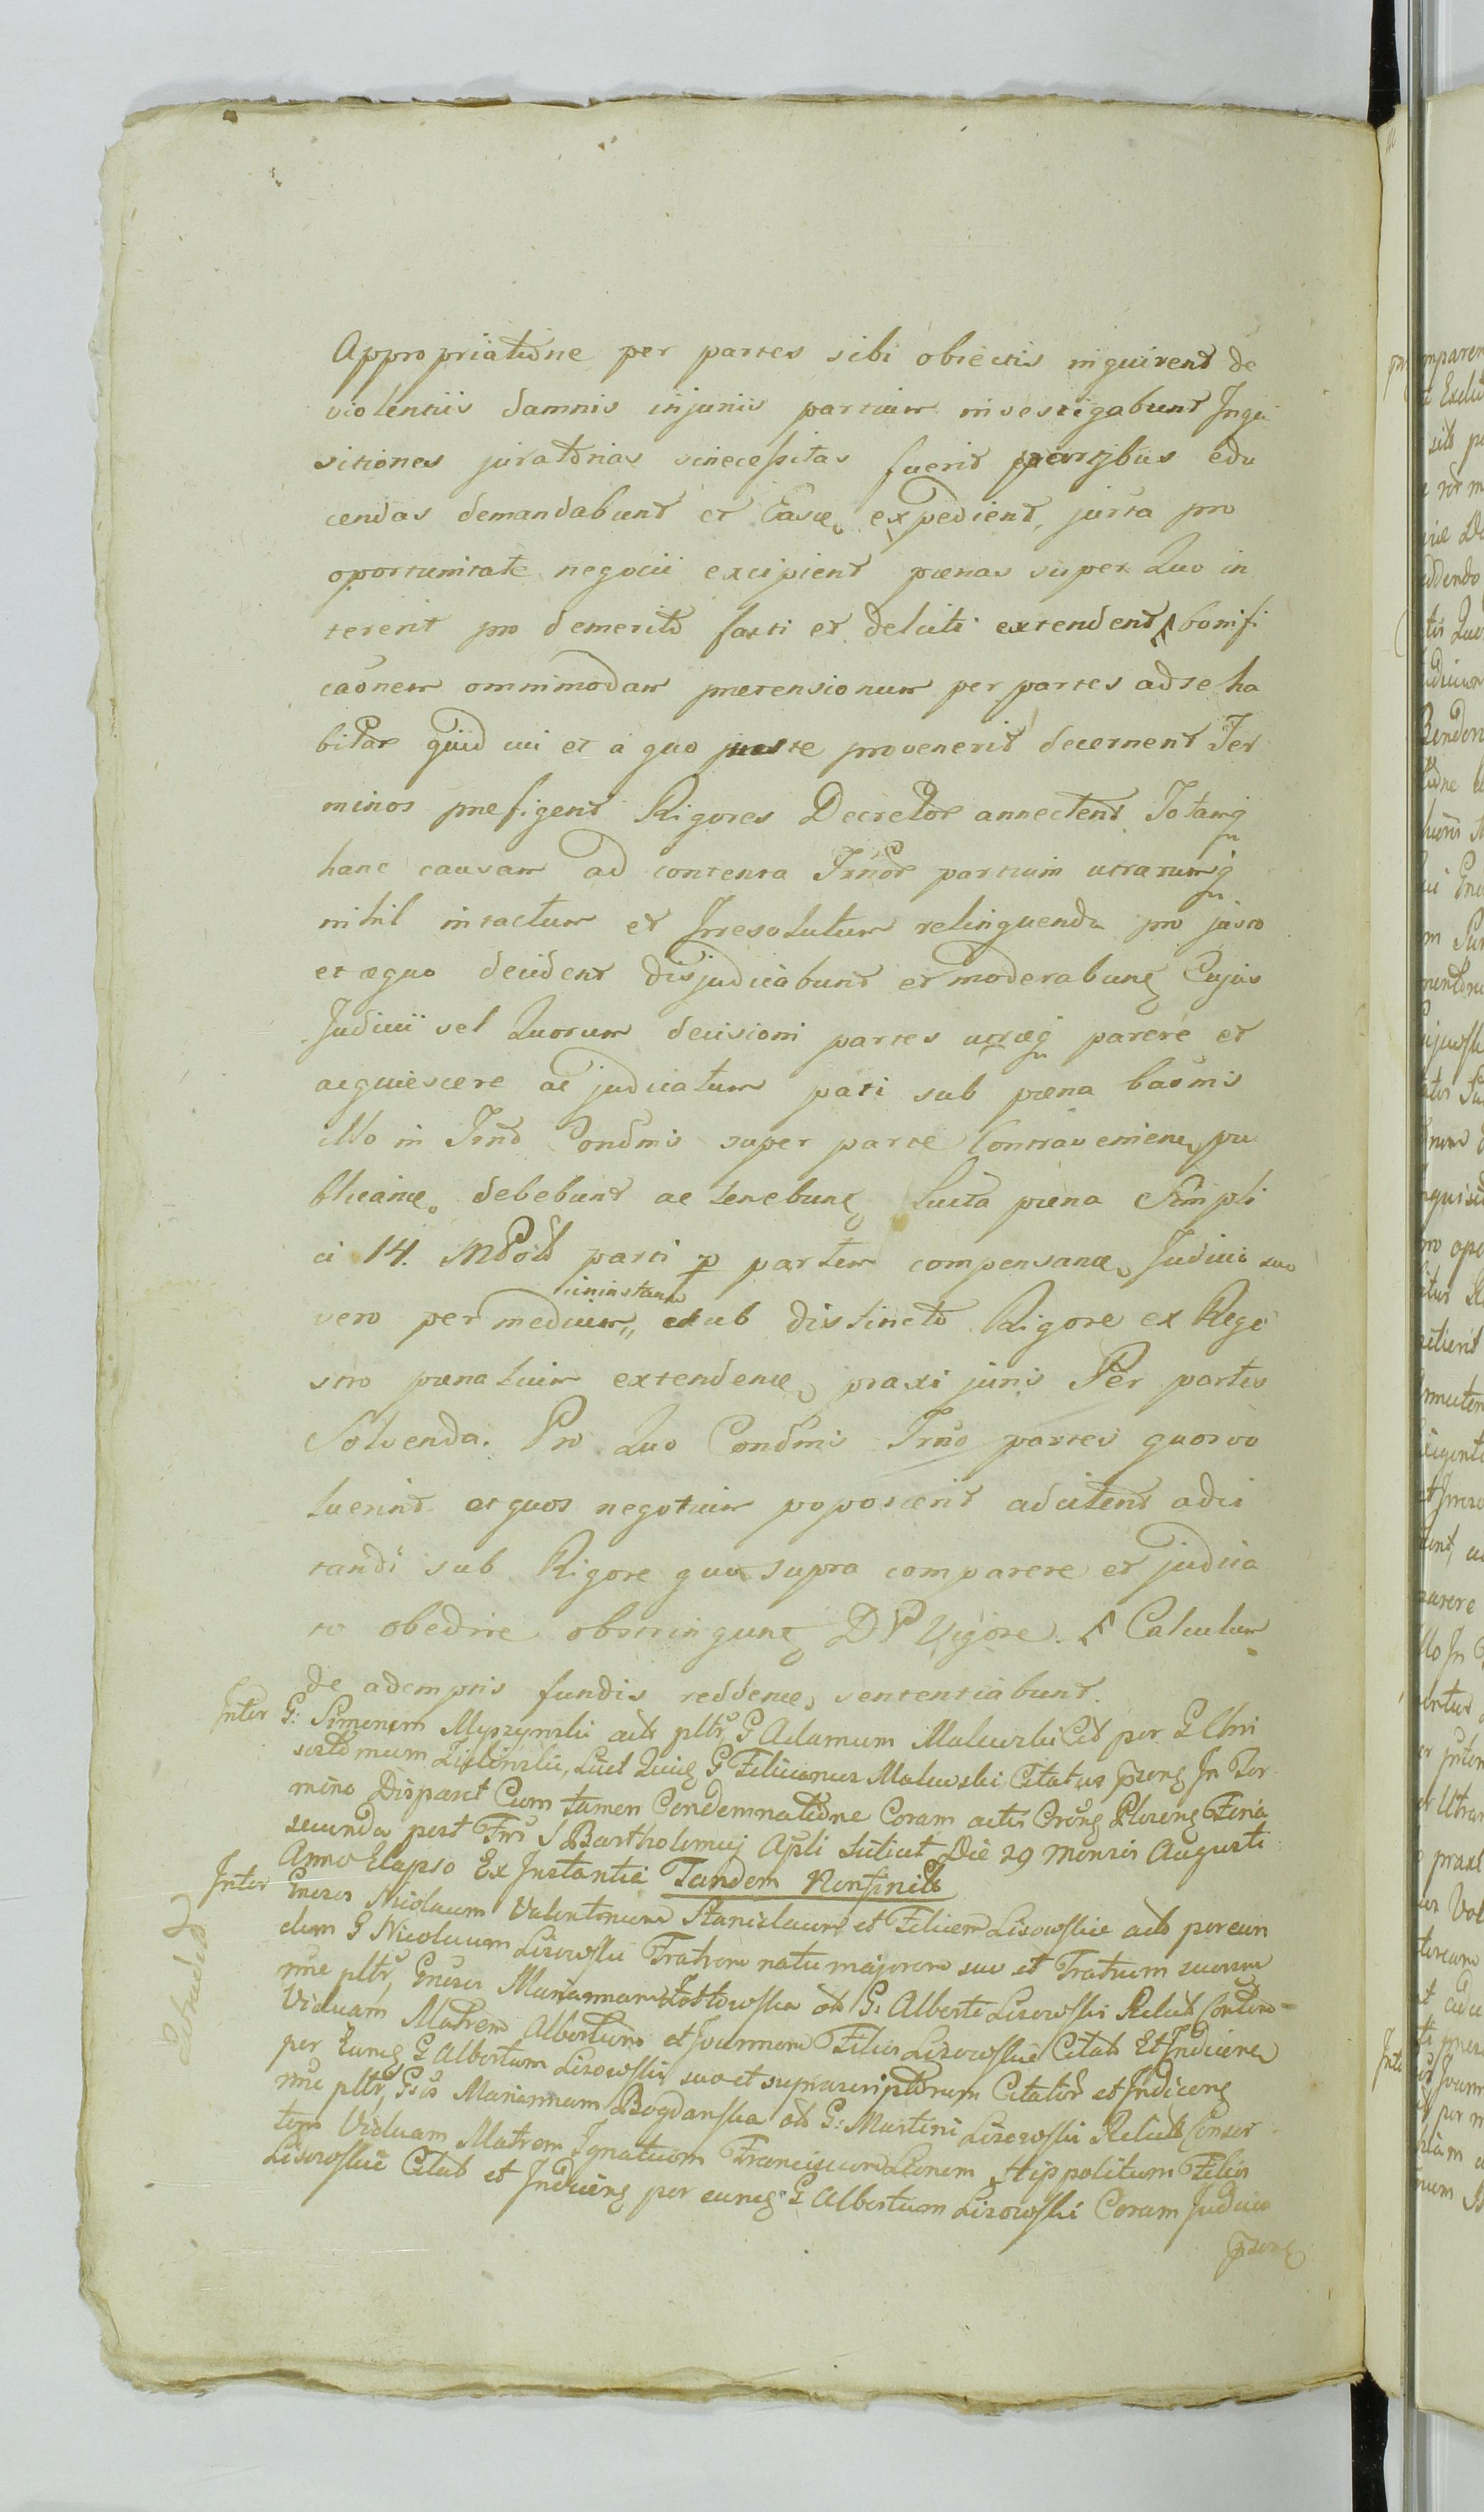 Appropriatione per partes sibi obiectis inquirent de
violentiis damnis injuriis partium investigabunt Inqui
sitiones juratorias sinecessitas fuerit partibus edu
cendas demandabunt et Easq expedient, juxta pro
oportunitate negocii excipient pœnas super Quo in
tererit pro demerito facti et delicti extendent bonifi
caõnem omnimodam prætensionum per partes adse ha
bitar quid cui et a quo juste provenerit decernent Ter
minos prefigent Rigores Decretor annectent Totamq
hanc causam ad contenta Trnor partium utrarumq
nihil intactum et Irresolutum relinquendo pro justo
et æquo decident disjudicabunt et moderabung Cujus
Judicii vel Quorum decisioni partes utræq parere et
acquiescere ac judicatum pati sub pœna baõmis
illo in Trno Condmis super parte Contraveniene pu
blicanæ debebunt ac tenebung Lucta pœna Simpli
ci 14. MPold parti p partem compensanæ Judicio suo
vero per medium ininstanti et sub distincto Rigore ex Regi
stro pœnalium extendenæ praxi juris Per partes
Solvenda. Pro Quo Condmis Trno partes quos vo
luerint et quos negotium poposcerit adcitent adci
tandi sub Rigore quo supra comparere et judica
to obedire obstringung DP Vigore. Calculum
de ademptis fundis reddenæ sententiabunt.
Inter G: Simonem Myszynski actt pltr G Adamum Malewski Cit per G Chri
mino Disparet Cum tamen Condemnatione Coram actis
secunda post Fm S Bartholomaj Apli Scilicet Die 29 Mensis Augusti
Anno Elapso Ex Instantia Tandem
Inter Gnesos Nicolaum Valentinum Stanislaum et Felicem Lisowskie actt per eun
dem G Nicolaum Lisowski Fratrem natu majorem suo et Fratrum suorum
nne pltr, Gnesos Mariannam G: Alberti Lisowski Relict Contem
Viduam Matrem Albertum et Joannem Filios Lisowskie Citat Et Indicene
per Eumq G Albertum Lisowski suo et suprascriptorum Citator et Indiceng
nne pltr, Gsos Mariannam Bogdanska olt G: Martini Lisowski Relict Consor
tem Viduam Matrem Ignatium Franciscum Leonem Hippolitum Filios
Lisowskie Citat et Indiceng per eumq G Albertum Lisowski Coram Judicio